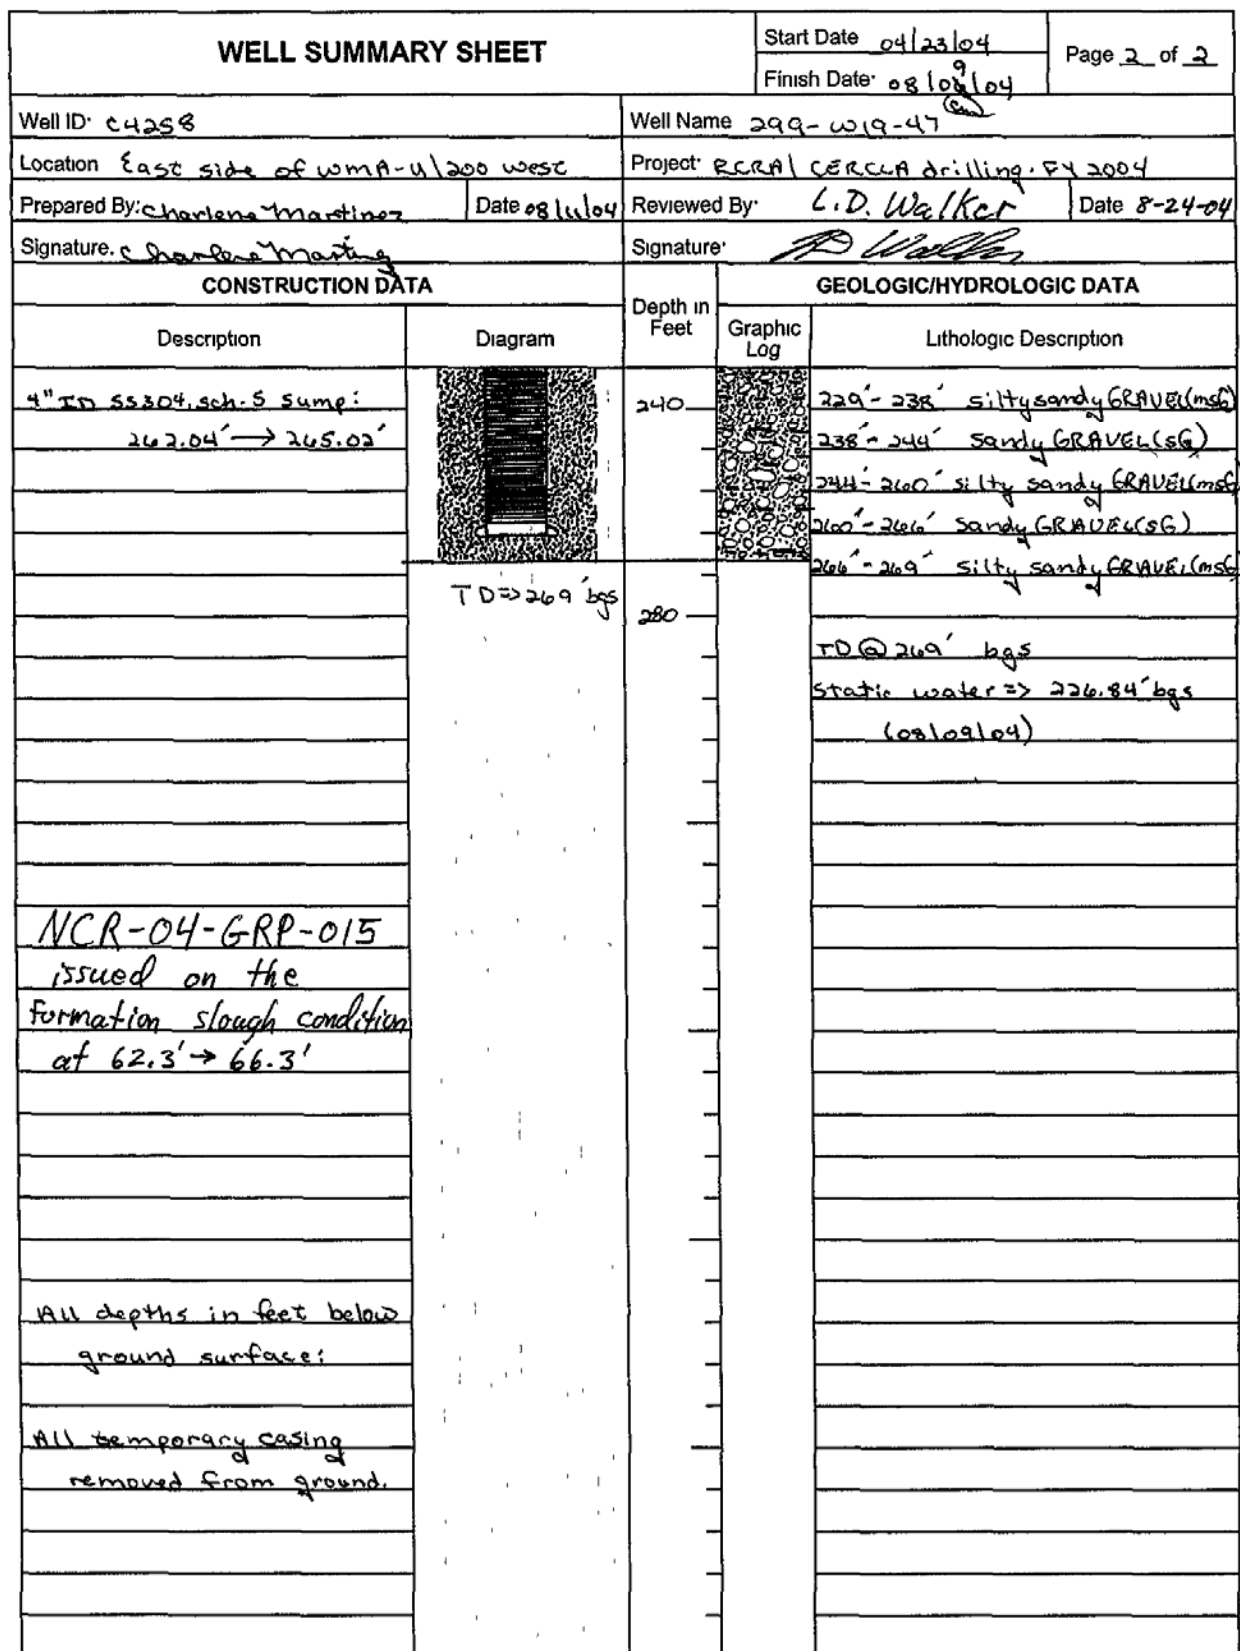 WELL SUMMARY SHEET
Start Date 04/23/04
Page 2 of 2
Finish Date: 08/09/04
Well ID: C4258
Well Name 299-W19-47
Location East side of WMA-U/200 West
Project: RCRA/CERCLA drilling. FY 2004
Prepared By: Charlene Martinez
Date 08/11/04
Reviewed By: L.D. Walker
Date 8-24-04
Signature. Charlene Martinez
Signature: LD Walker
CONSTRUCTION DATA
Depth in Feet
GEOLOGIC/HYDROLOGIC DATA
Description
Diagram
Graphic Log
Lithologic Description
4" ID SS304, sch. 5 sump:
262.04' → 265.02'
240
229'- 238' silty sandy GRAVEL (msG)
238'- 244' sandy GRAVEL (sG)
244'- 260' silty sandy GRAVEL (msG)
260'- 266' sandy GRAVEL (sG)
266'- 269' silty sandy GRAVEL (msG)
TD => 269' bgs
280
TD @ 269' bgs
static water => 226.84' bgs
(08/09/04)
NCR-04-GRP-015
issued on the
formation slough condition
at 62.3' → 66.3'
All depths in feet below
ground surface:
All temporary casing
removed from ground.